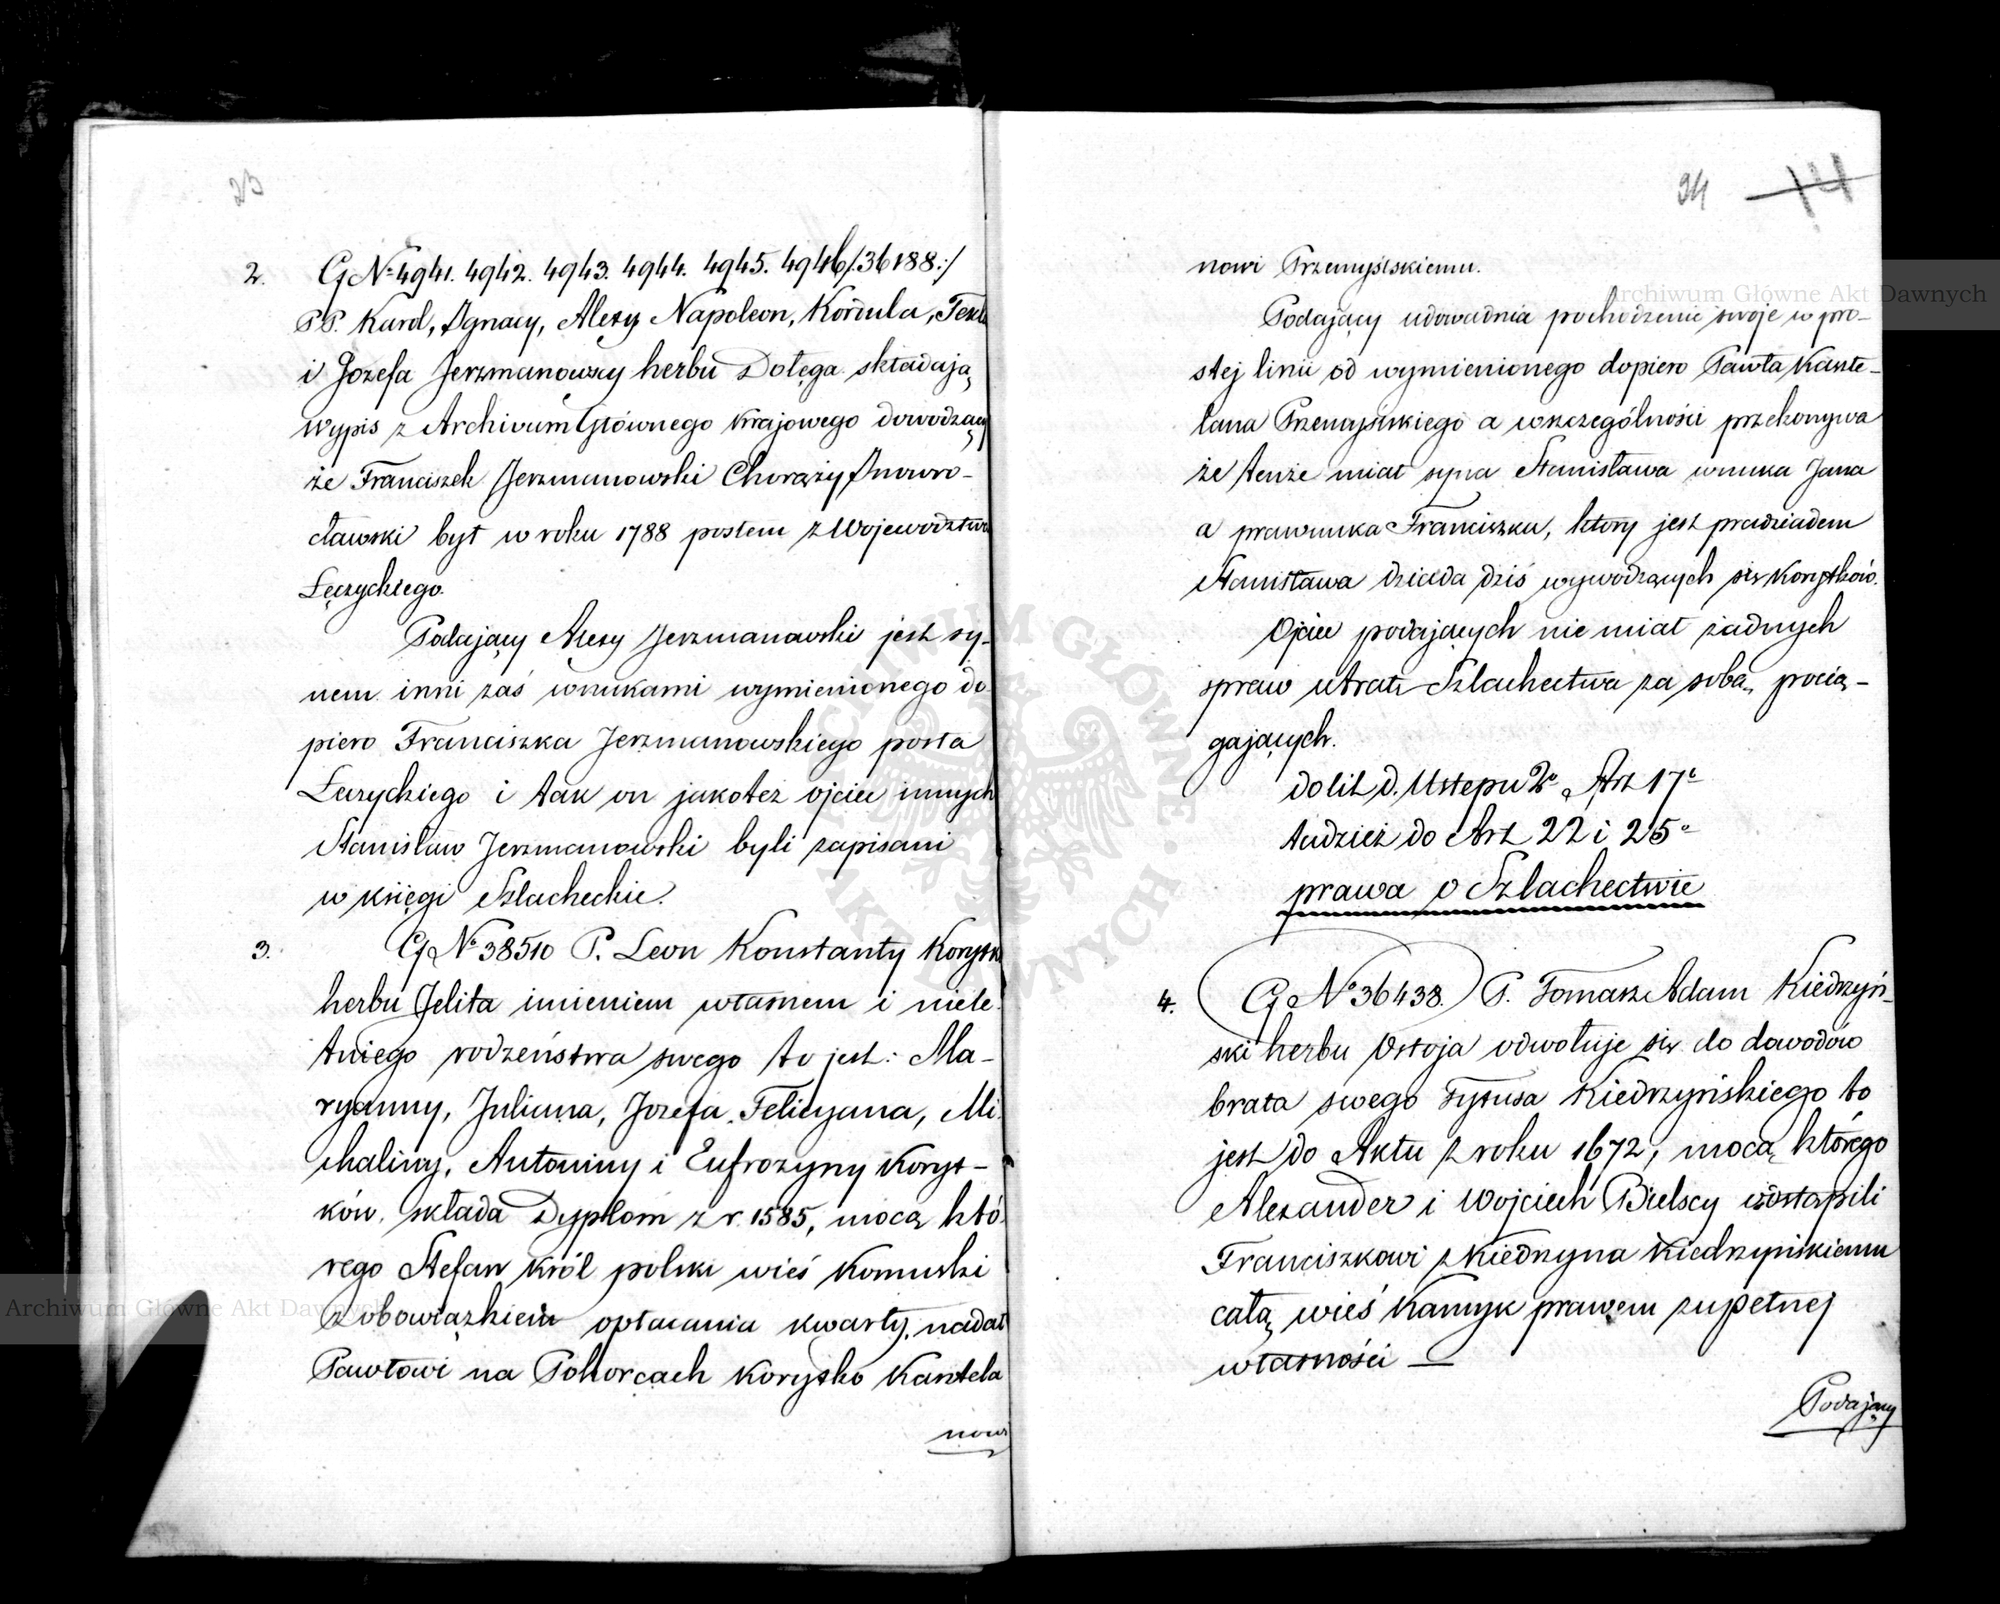 23
2. G N° 4941. 4942. 4943. 4944. 4945. 4946/:36188:/
PP. Karol, Ignacy, Alexy Napoleon, Kordula, Tekla
i Jozefa Jerzmanowscy herbu Dołęga składają
Wypis z Archivum Głównego Krajowego dowodzący
że Franciszek Jerzmanowski Chorąży Inowro-
cławski był w roku 1788 posłem z Województwa
Łęczyckiego.
Podający Alexy Jerzmanowski jest sy-
nem inni zaś wnukami wymienionego do
piero Franciszka Jerzmanowskiego posła
Łęczyckiego i tak on jakoteż ojciec innych
Stanisław Jerzmanowski byli zapisani
w księgi Szlacheckie.
3. G N° 38510 P. Leon Konstanty Korytko
herbu Jelita imieniem własnem i niele
tniego rodzeństwa swego to jest: Ma-
ryanny, Juliana, Jozefa, Felicyana, Mi
chaliny, Antoniny i Eufrozyny Koryt-
ków, składa Dyplom z r. 1585, mocą któ
rego Stefan Król polski wieś Komuszki
z obowiązkiem opłacania kwarty, nadał
Pawłowi na Pohorcach Korytko Kasztela
nowi
24 14
nowi Przemyślskiemu.
Podający udowadnia pochodzenie swoje w pro-
stej linii od wymienionego dopiero Pawła Kaszte-
lana Przemyślskiego a wszczególności przekonywa
że tenże miał syna Stanisława wnuka Jana
a prawnuka Franciszka, który jest pradziadem
Stanisława dziada dziś wywodzących się Korytków.
Ojciec podających nie miał żadnych
spraw utratę Szlachectwa za sobą pocią-
gających.
do lit d. Ustępu 2° Art 17°
tudzież do Art 22 i 25°
prawa o Szlachectwie
4. G N° 36438. P. Tomasz Adam Kiedrzyń-
ski herbu Ostoja odwołuje się do dowodów
brata swego Tytusa Kiedrzyńskiego to
jest do Aktu z roku 1672, mocą którego
Alexander i Wojciech Bielscy odstąpili
Franciszkowi z Kiedrzyna Kiedrzyńskiemu
całą wieś Kamyk prawem zupełnej
własności —
Podający
Archiwum Główne Akt Dawnych
Archiwum Główne Akt Dawnych
ARCHIWUM GŁÓWNE AKT DAWNYCH